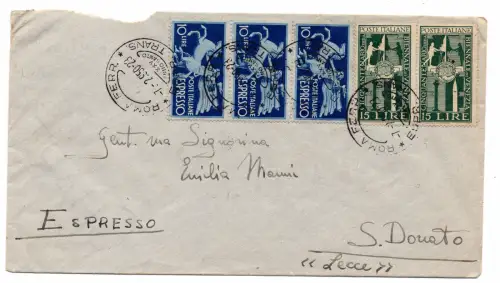 10 LIRE
10 LIRE
10 LIRE
POSTE ITALIANE
ESPRESSO
POSTE ITALIANE
ESPRESSO
POSTE ITALIANE
ESPRESSO
POSTE ITALIANE
15 LIRE
POSTE ITALIANE
15 LIRE
ROMA FERR. TRANS
Gent. ma Signorina
Emilia Manni
ESPRESSO
S. Donato
"Lecce"